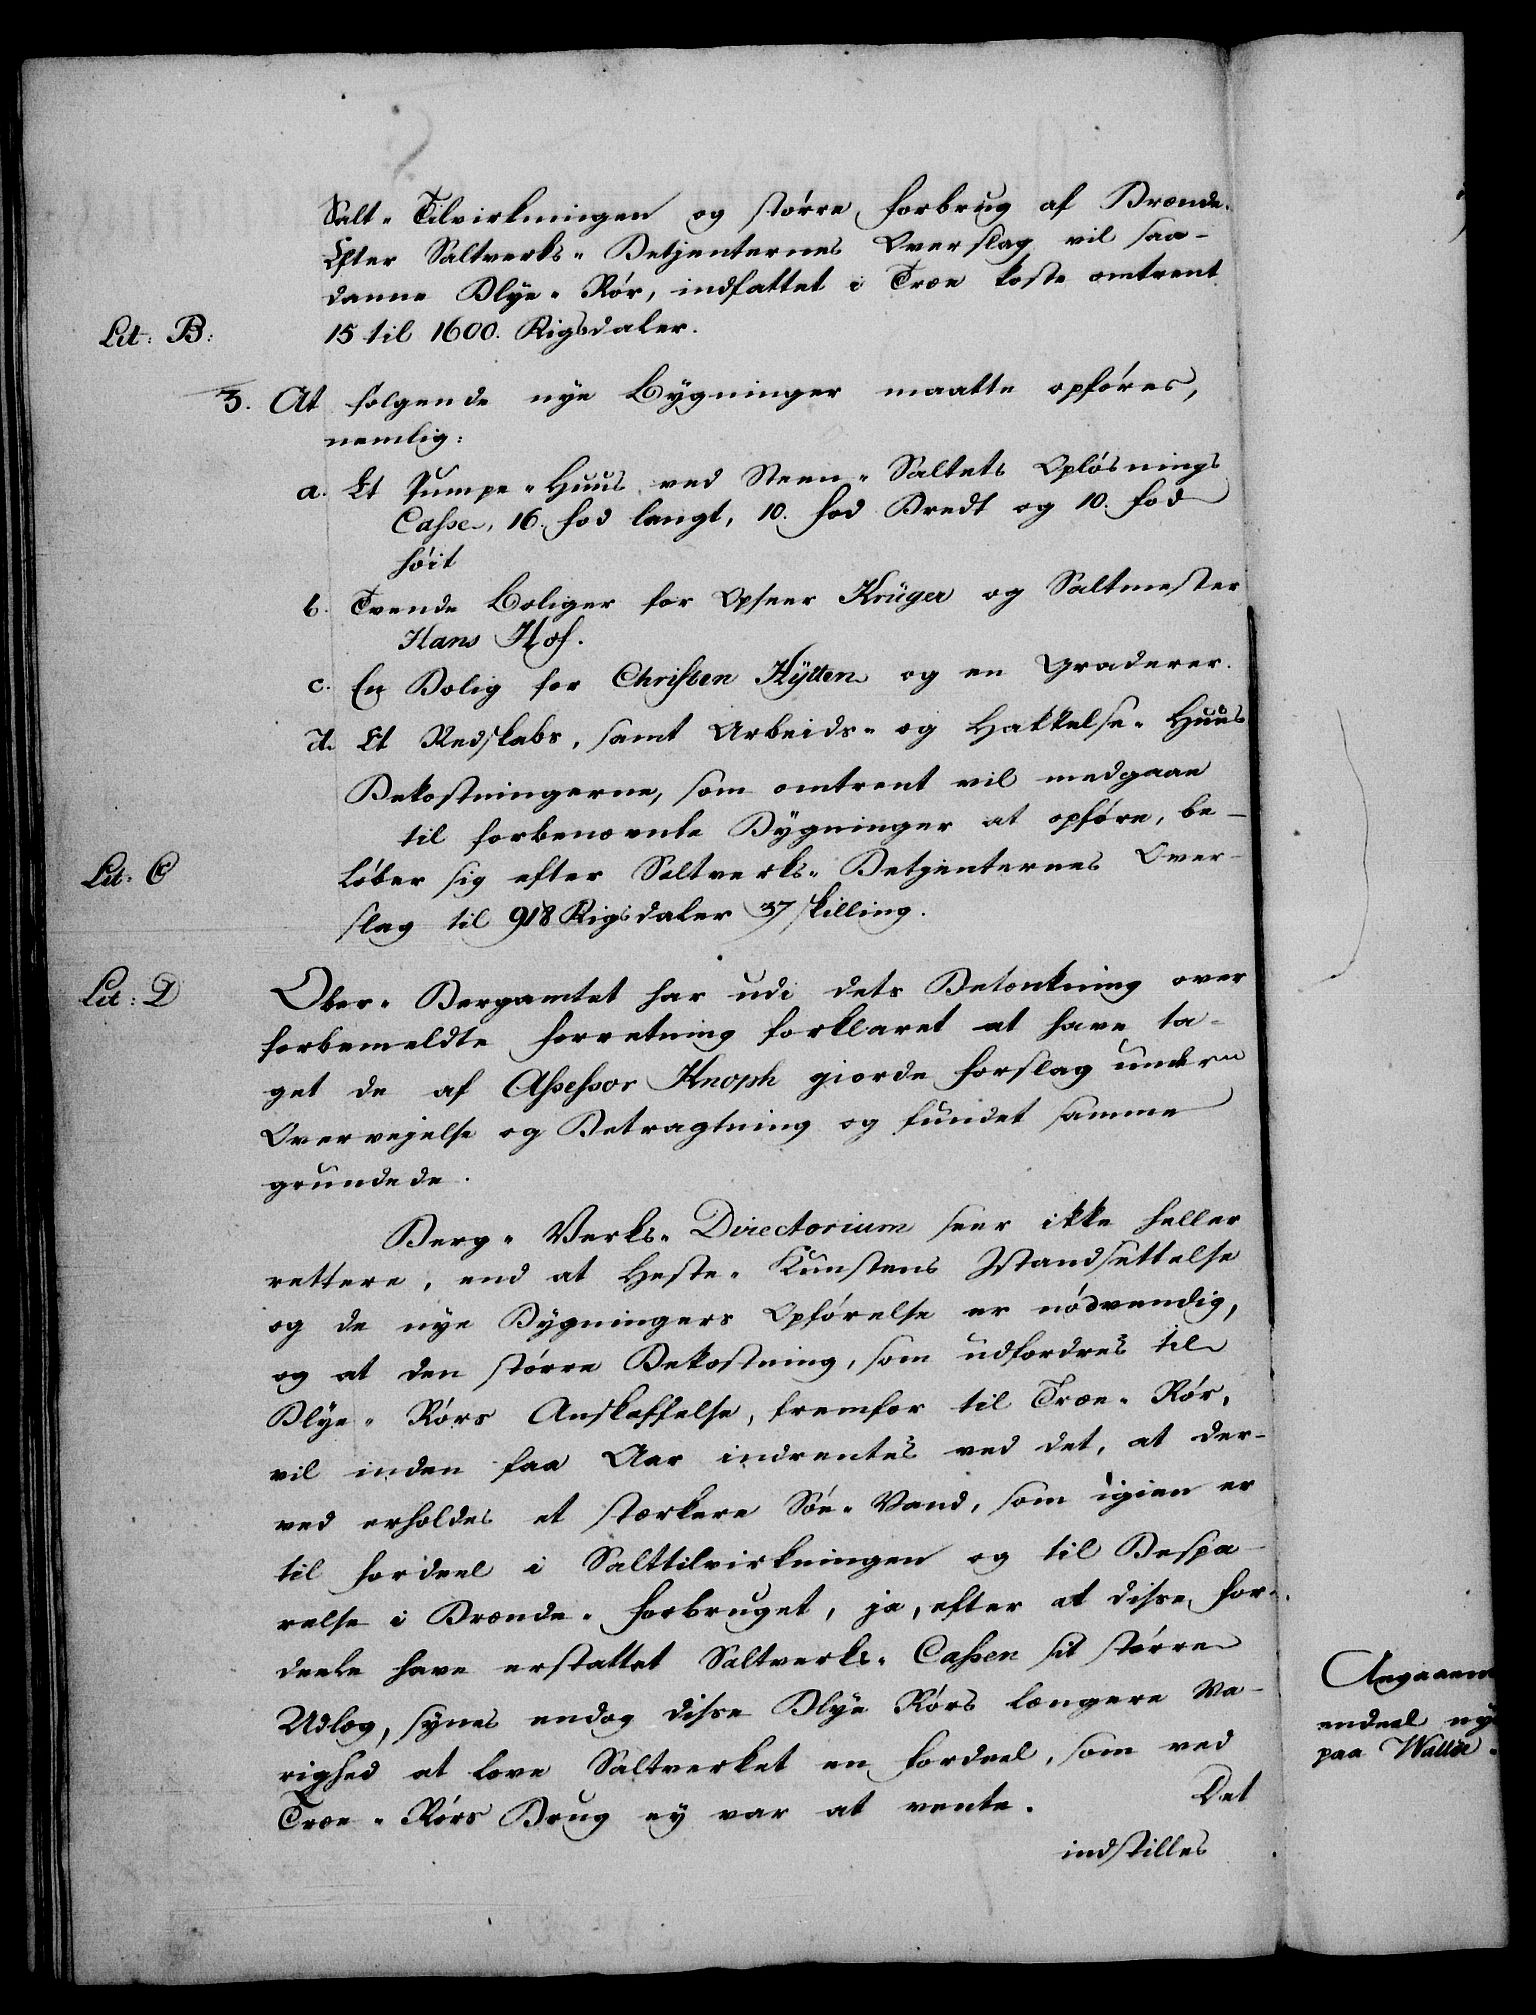 Salt-Tilvirkningen og større Forbrug af Brænde.
Efter Saltverks-Betjenternes Overslag vil saa-
danne Blye-Rør, indfattet i Træe koste omtrent
Lit: B: 15 til 1600. Rigsdaler.
3. At følgende nye Bygninger maatte opføres,
nemlig:
a. Et Pumpe-Huus ved Steen-Saltets Opløsnings
Casse, 16. Fod langt, 10. Fod Bredt og 10. Fod
høit
b. Tvende Boliger for Opseer Krüger og Saltmester
Hans Hof.
c. En Bolig for Christen Hÿtten og en Graderer.
d. Et Redskabs, samt Arbeids- og Hakkelse-Huus
Bekostningerne, som omtrent vil medgaae
til forbenævnte Bygninger at opføre, be-
Lit: C løber sig efter Saltverks-Betjenternes Over-
slag til 918 Rigsdaler 37 skilling.
Lit: D Ober-Bergamtet har udi dets Betænkning over
forbemeldte Forretning forklaret at have ta-
get de af Assessor Knoph giorde Forslag under
Overvejelse og Betragtning og fundet samme
grundede.
Berg-Verks-Directorium seer ikke heller
rettere, end at Heste-Kunstens Istandsettelse
og de nye Bygningers Opførelse er nødvendig,
og at den større Bekostning, som udfordres til
Blye-Rørs Anskaffelse, fremfor til Træe-Rør,
vil inden faa Aar indrentes ved det, at der-
ved erholdes et stærkere Søe-Vand, som igien er
til Fordeel i Salttilvirkningen og til Bespa-
relse i Brænde-Forbruget, ja, efter at disse For-
deele have erstattet Saltverks-Cassen sit større
Udlæg, synes endog disse Blye Rørs længere Va-
righed at love Saltverket en Fordeel, som ved
Træe-Rørs Brug ey var at vente. Det
indstilles
Angaaen
endeel nye
paa Walløe